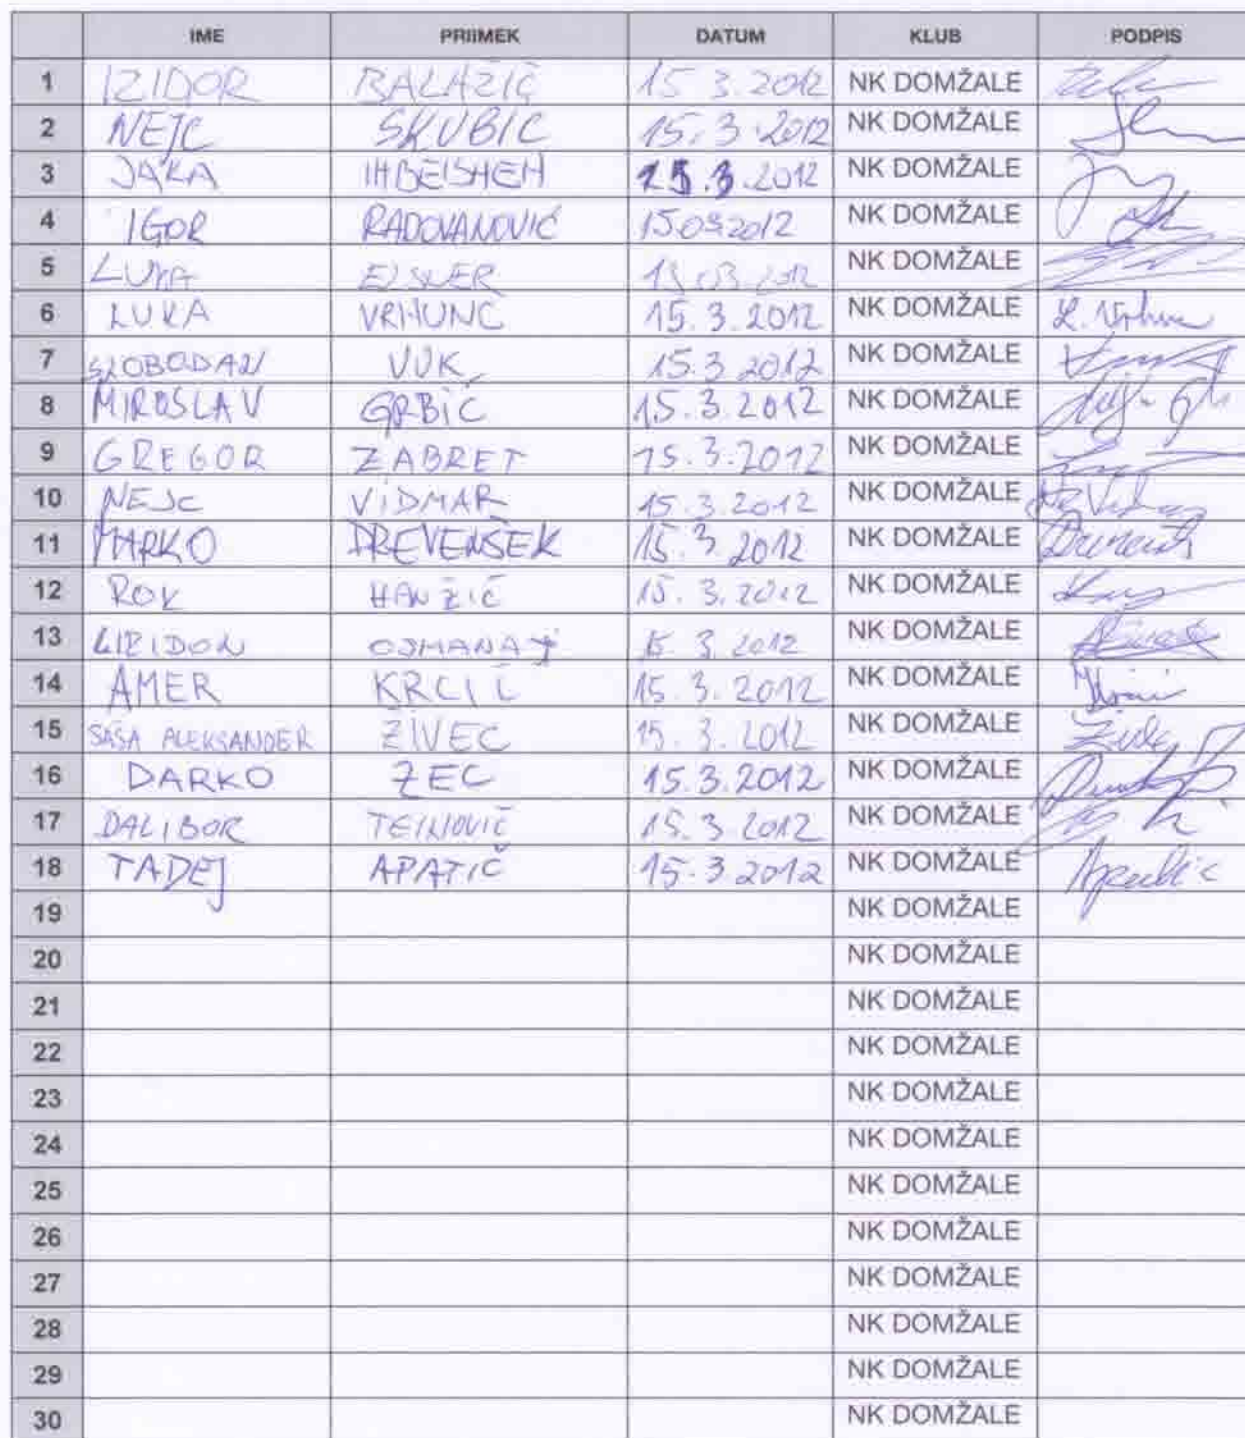 IME PRIIMEK DATUM KLUB PODPIS
1 IZIDOR BALAŽIČ 15.3.2012 NK DOMŽALE
2 NEJC SKUBIC 15.3.2012 NK DOMŽALE
3 JAKA IHBEISHEH 15.3.2012 NK DOMŽALE
4 IGOR RADOVANOVIĆ 15032012 NK DOMŽALE
5 LUKA ELSNER 15.03.2012 NK DOMŽALE
6 LUKA VRHUNC 15.3.2012 NK DOMŽALE
7 SLOBODAN VUK 15.3.2012 NK DOMŽALE
8 MIROSLAV GRBIĆ 15.3.2012 NK DOMŽALE
9 GREGOR ZABRET 15.3.2012 NK DOMŽALE
10 NEJC VIDMAR 15.3.2012 NK DOMŽALE
11 MARKO DREVENŠEK 15.3.2012 NK DOMŽALE
12 ROK HANŽIČ 15.3.2012 NK DOMŽALE
13 LIRIDON OSMANAJ 15.3.2012 NK DOMŽALE
14 AMER KRCIĆ 15.3.2012 NK DOMŽALE
15 SAŠA ALEKSANDER ŽIVEC 15.3.2012 NK DOMŽALE
16 DARKO ZEC 15.3.2012 NK DOMŽALE
17 DALIBOR TEINOVIĆ 15.3.2012 NK DOMŽALE
18 TADEJ APATIČ 15.3.2012 NK DOMŽALE
19 NK DOMŽALE
20 NK DOMŽALE
21 NK DOMŽALE
22 NK DOMŽALE
23 NK DOMŽALE
24 NK DOMŽALE
25 NK DOMŽALE
26 NK DOMŽALE
27 NK DOMŽALE
28 NK DOMŽALE
29 NK DOMŽALE
30 NK DOMŽALE